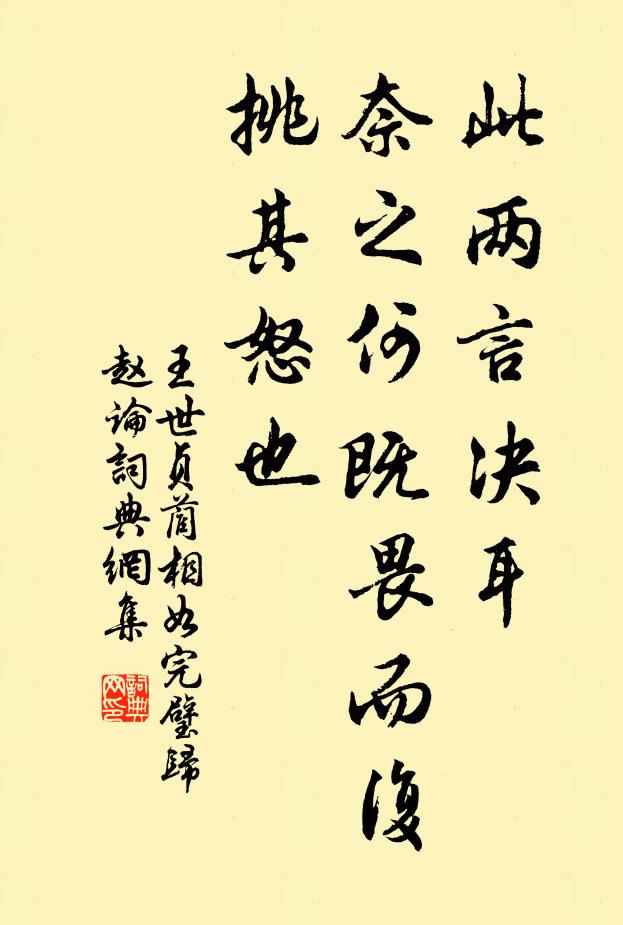 此两言决耳
奈之何既畏而復
挑其怒也
王世貞蔺相如完璧歸
赵論詞典網集
詞典
网印